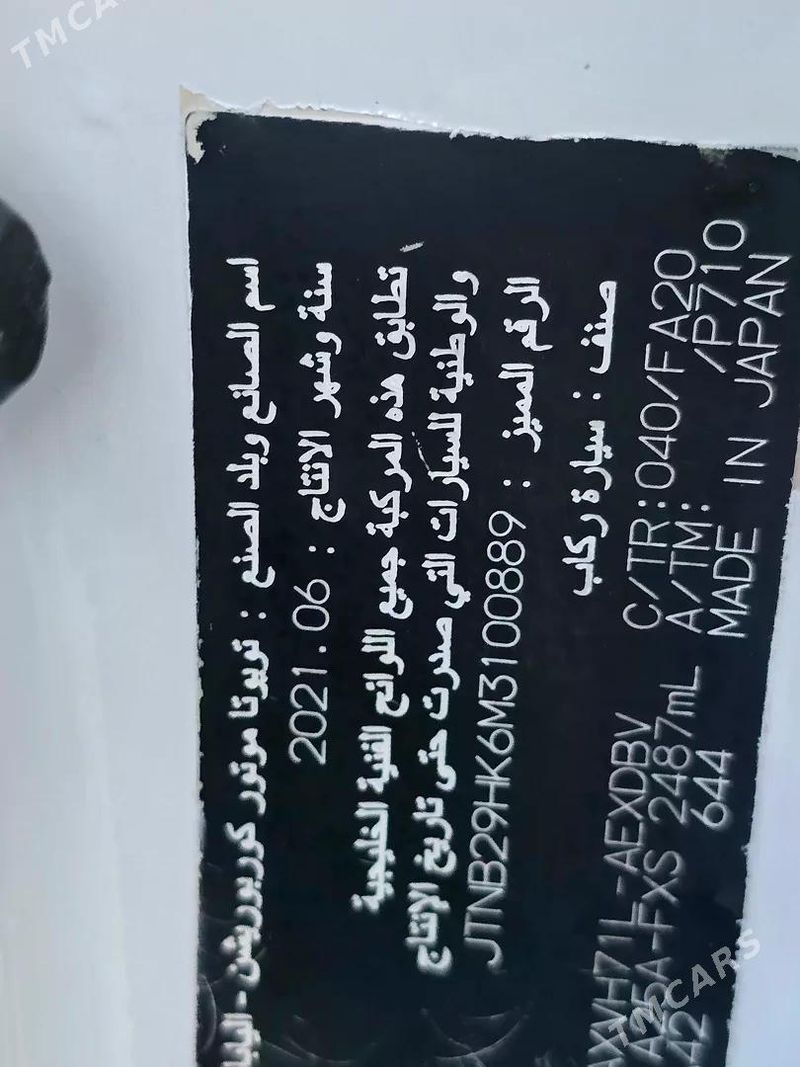 TMCARS
اسم الصانع وبلد الصنع : تويوتا موتور كوربوريشن - اليابا
سنة وشهر الانتاج : 2021.06
تطابق هذه المركبة جميع اللوائح الفنية الخليجية
والوطنية للسيارات التي صدرت حتى تاريخ الإنتاج
الرقم المميز : JTNB29HK6M3100889
صنف : سيارة ركاب
AXVH71L-AEXDBV C/TR:040/FA20
A25A-FXS 2487mL A/TM: /P710
A42 644 MADE IN JAPAN
TMCARS